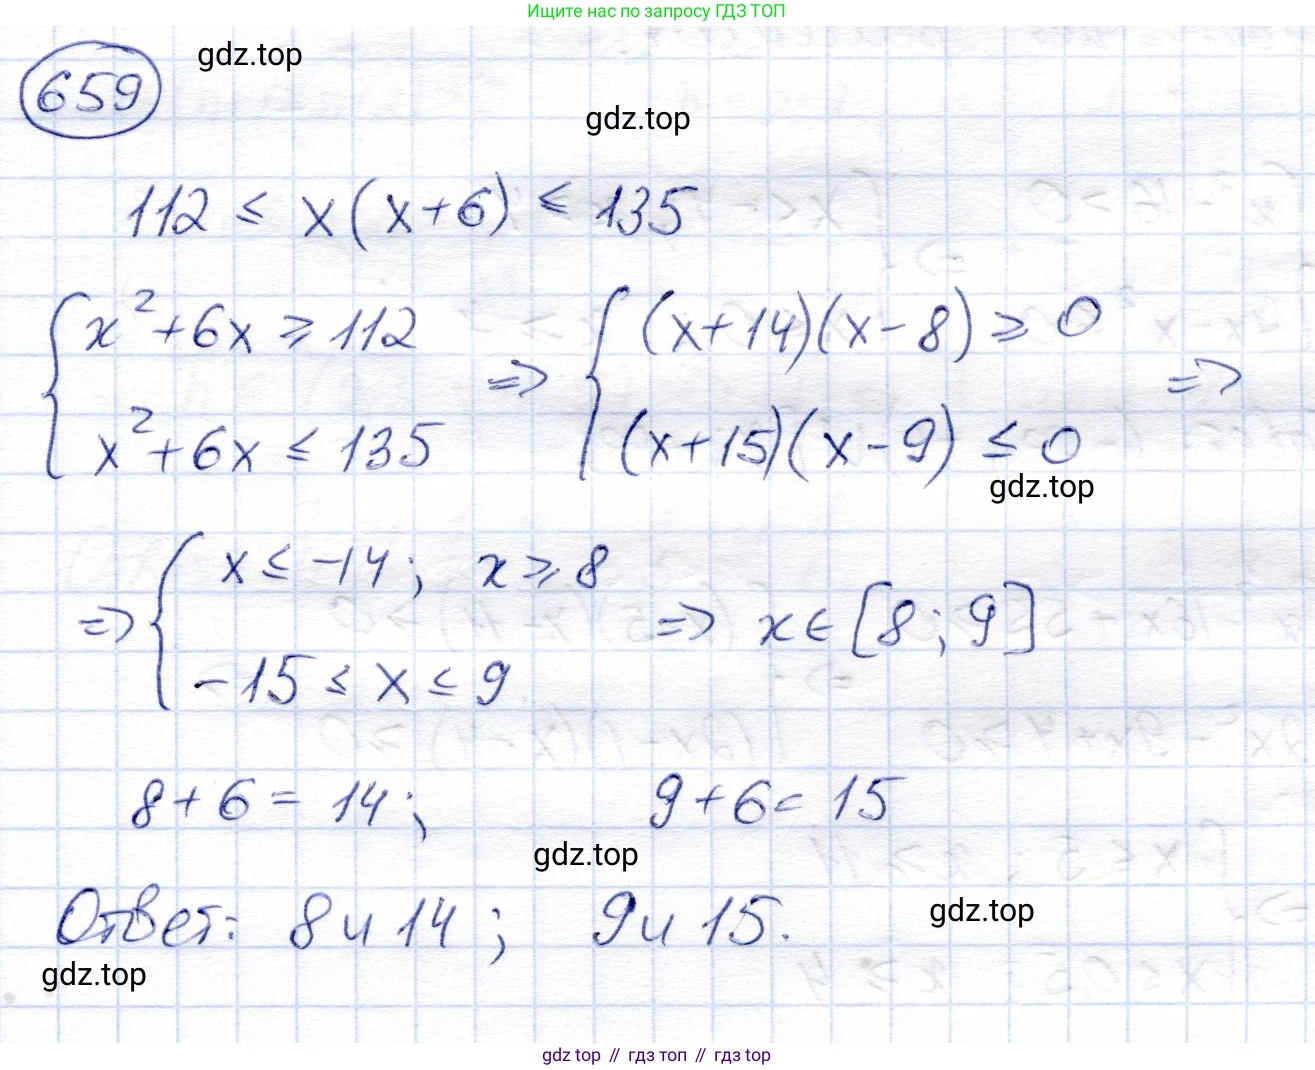 Ищите нас по запросу ГДЗ ТОП
gdz.top
659
gdz.top
112 ≤ x(x+6) ≤ 135
{ x²+6x ≥ 112 => { (x+14)(x-8) ≥ 0 =>
x²+6x ≤ 135 (x+15)(x-9) ≤ 0
gdz.top
=> { x ≤ -14; x ≥ 8 => x ∈ [8; 9]
-15 ≤ x ≤ 9
8+6 = 14; 9+6 = 15
gdz.top
Ответ: 8 и 14; 9 и 15.
gdz.top
gdz.top
gdz top // гдз топ // gdz top